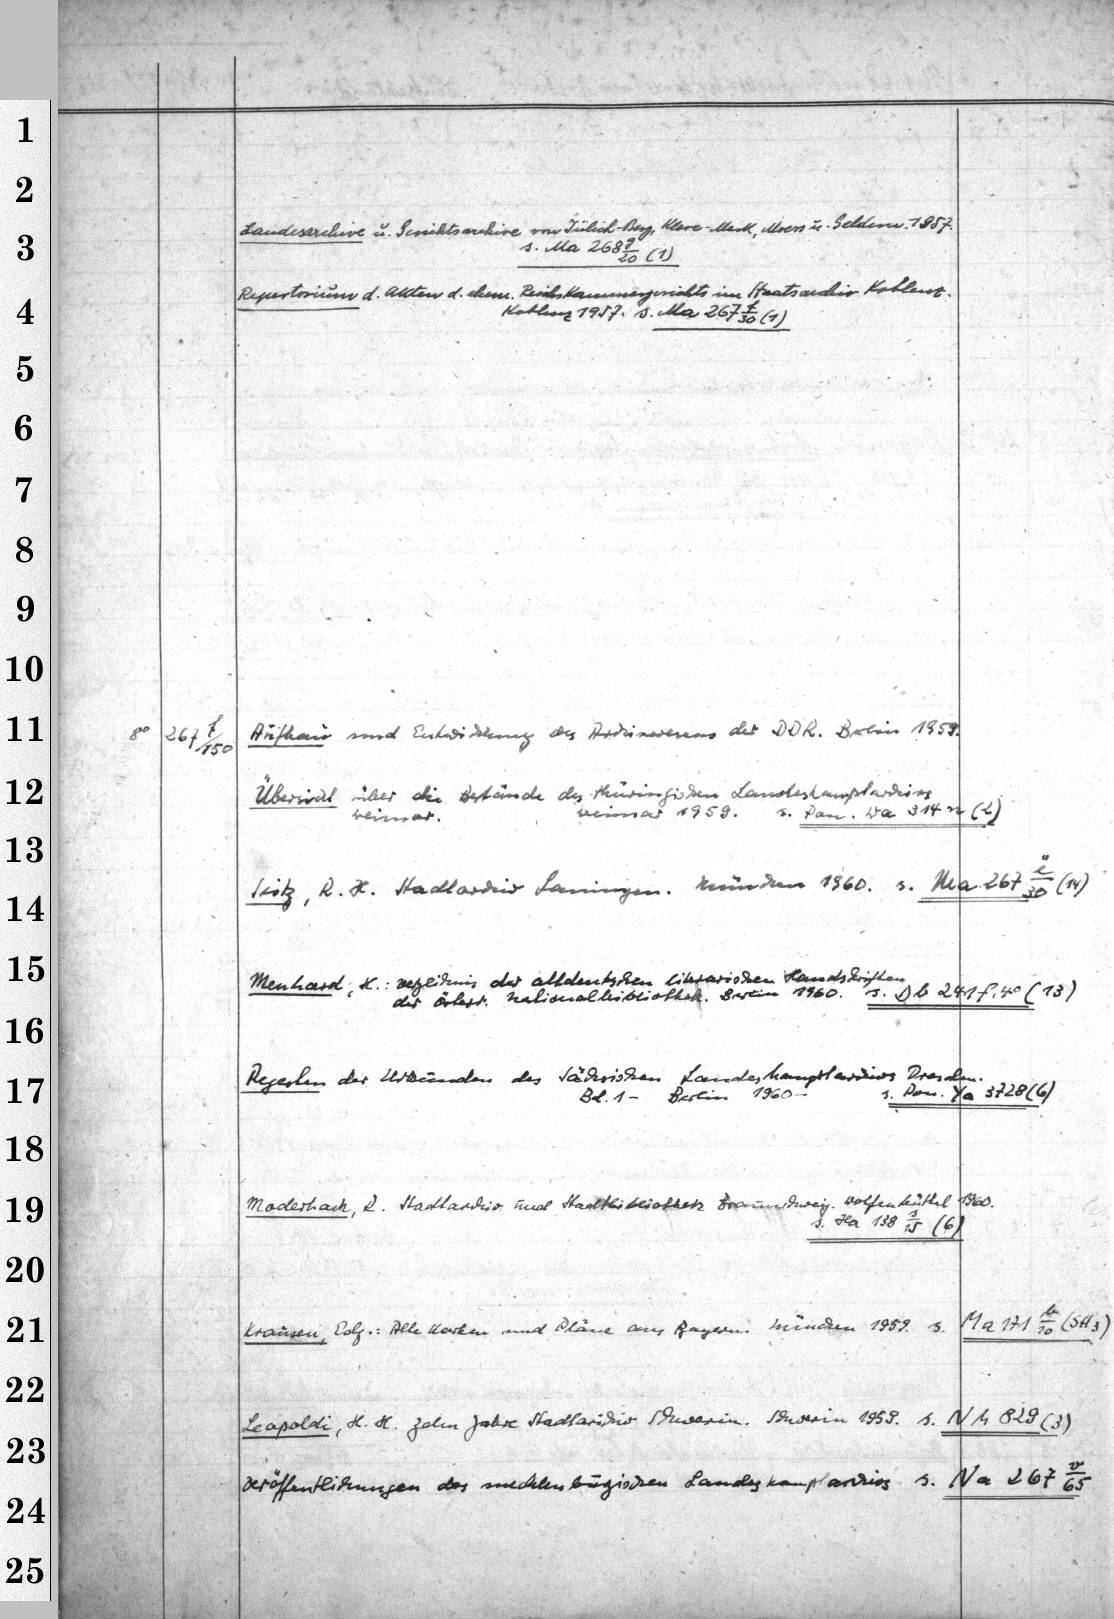 Landesarchive u. Gerichtsarchive von Jülich-Berg, Kleve-Mark, Moers u. Geldern. 1957.
s. Ma 268 g/20 (1)
Repertorium d. Akten d. ehem. Reichskammergerichts im Staatsarchiv Koblenz.
Koblenz 1957. s. Ma 267 f/30 (1)
8° 267 f/150 Aufbau und Entwicklung des Archivwesens der DDR. Berlin 1959.
Übersicht über die Bestände des Thüringischen Landeshauptarchivs
Weimar. Weimar 1959. s. Pon. Wa 314 n (2)
Seitz, R. H. Stadtarchiv Lauingen. München 1960. s. Ma 267 ë/30 (14)
Menhard, H.: Verzeichnis der altdeutschen literarischen Handschriften
der österr. Nationalbibliothek. Berlin 1960. s. Db 241 f. 4° (13)
Regesten der Urkunden des Sächsischen Landeshauptarchivs Dresden.
Bd. 1 – Berlin 1960 – s. Pon. Ya 3728 (6)
Moderhack, R. Stadtarchiv und Stadtbibliothek Braunschweig. Wolfenbüttel 1960.
s. Ha 138 s/15 (6)
Krausen, Edg.: Alte Karten und Pläne aus Bayern. München 1959. s. Ma 171 b/10 (SH 3)
Leopoldi, H. H. Zehn Jahre Stadtarchiv Schwerin. Schwerin 1959. s. Nh 829 (3)
Veröffentlichungen des mecklenburgischen Landeshauptarchivs s. Na 267 v/65